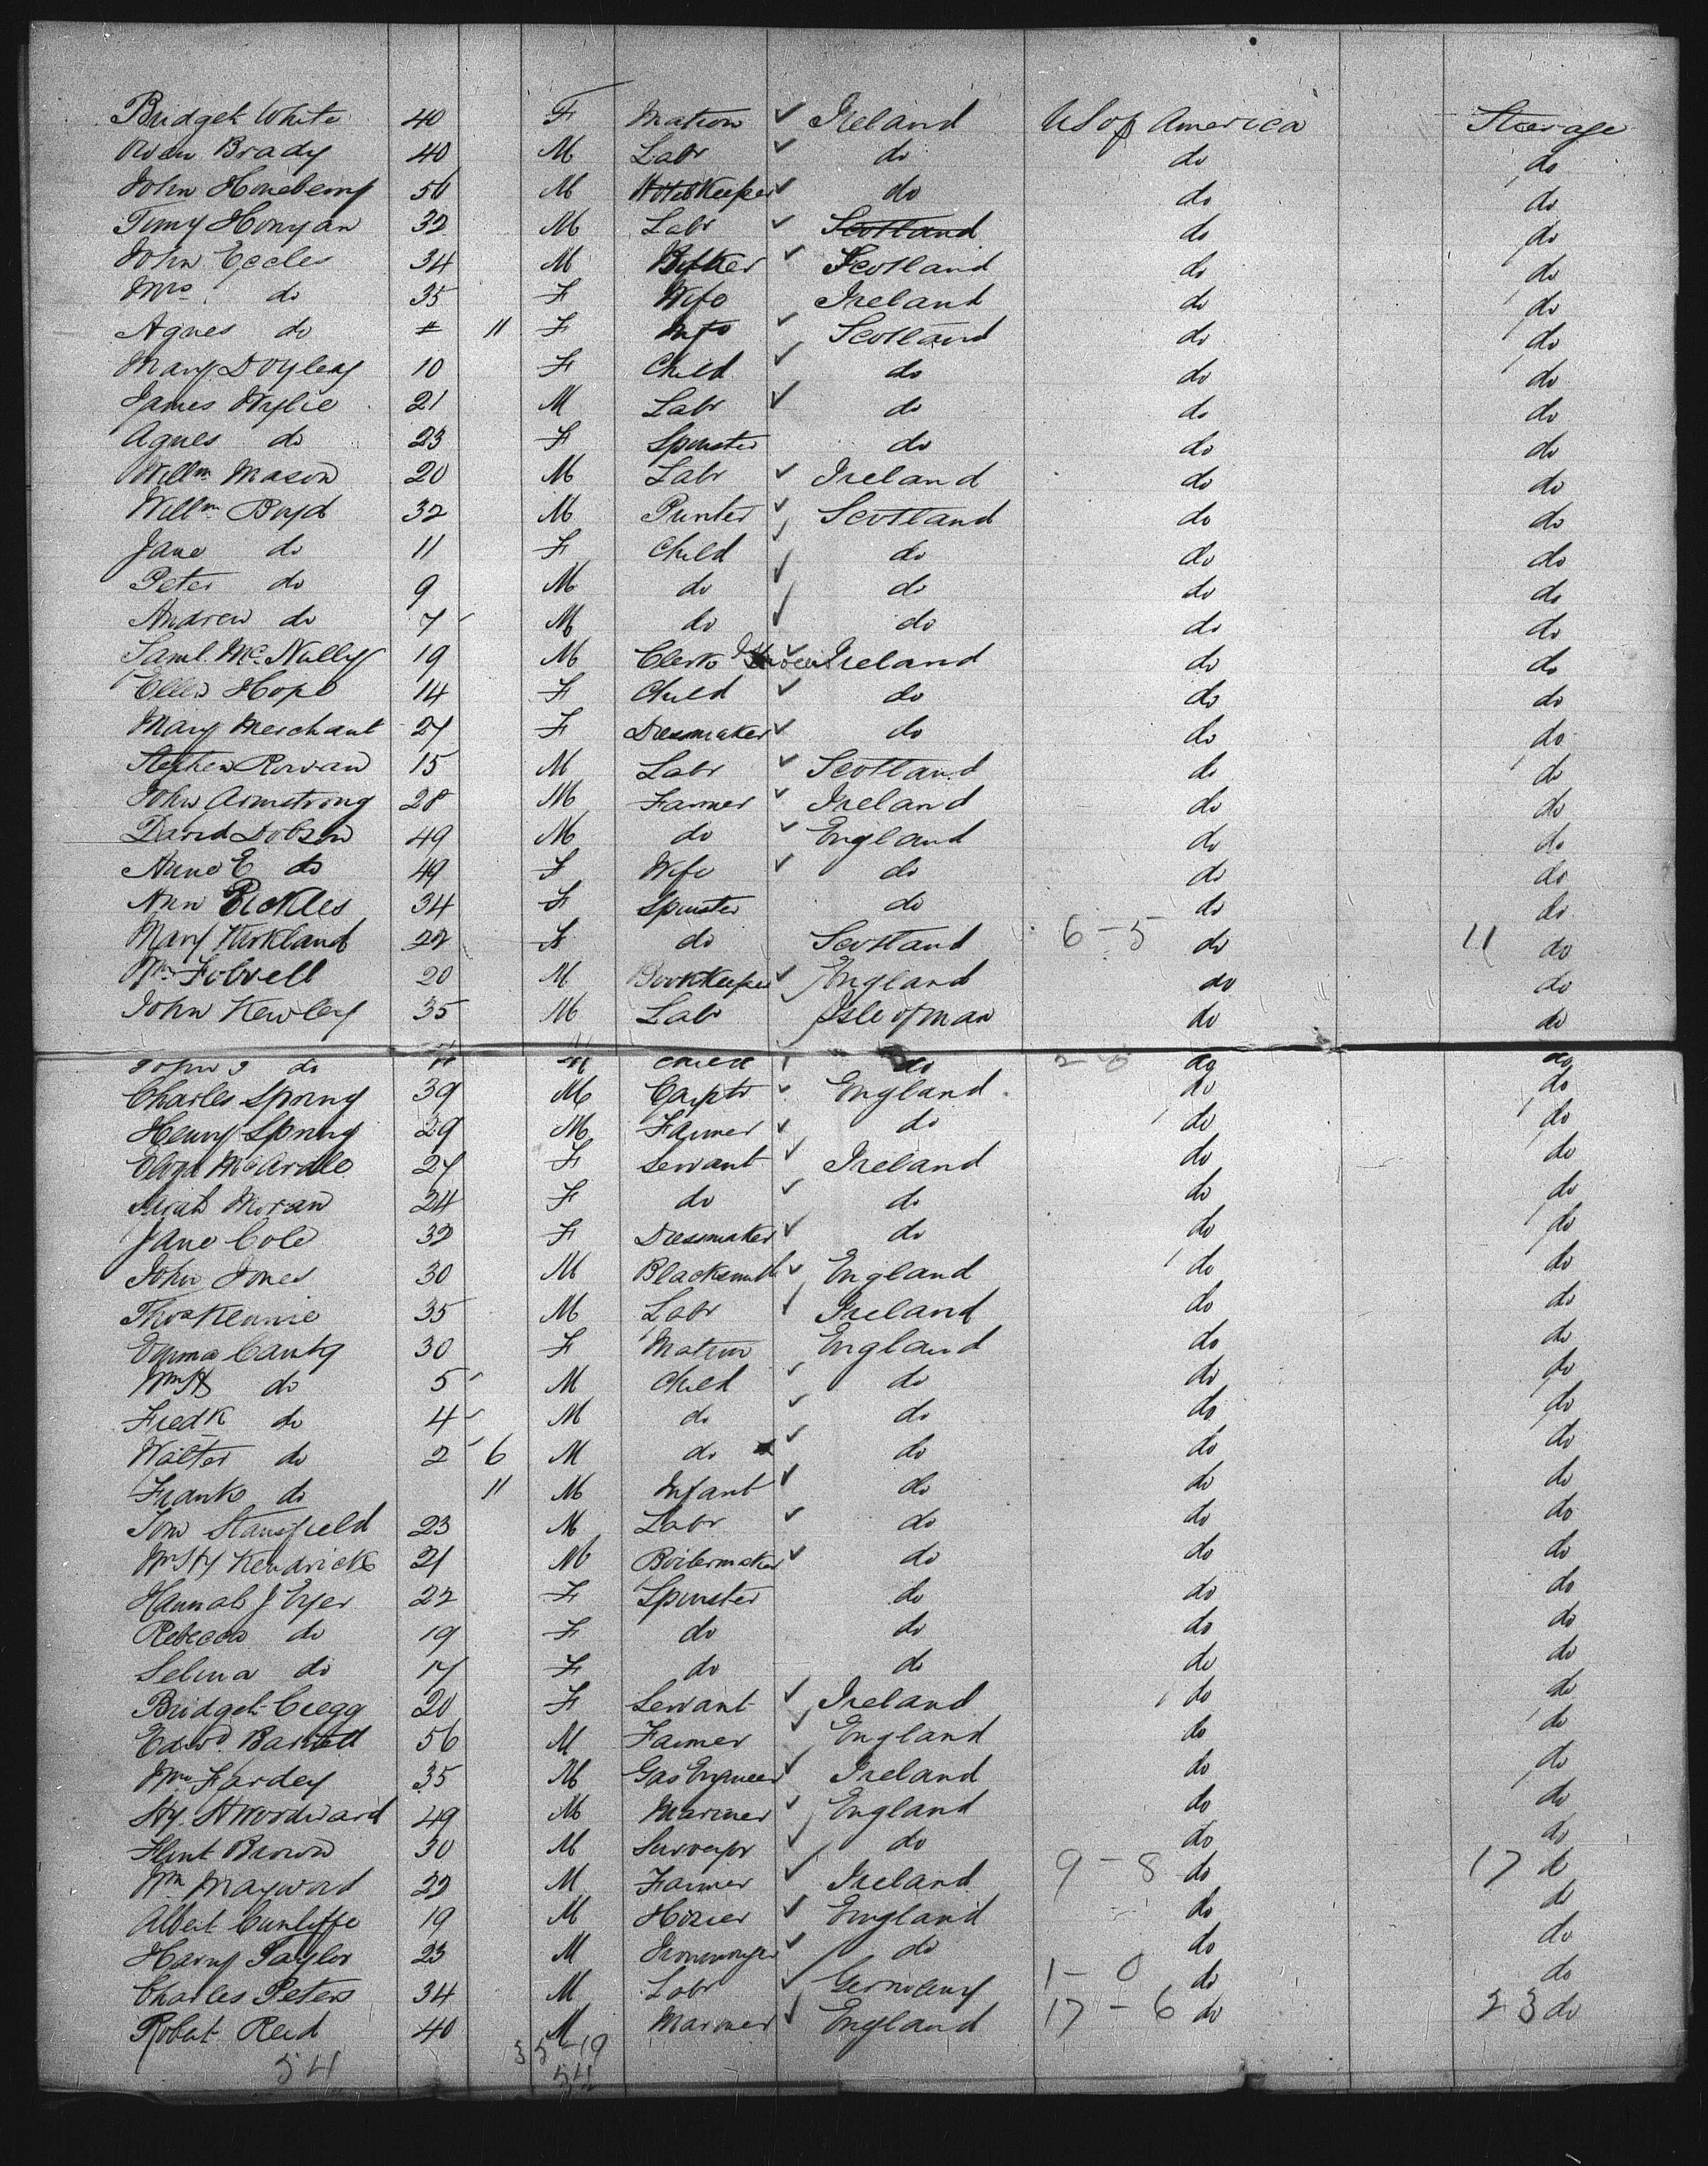 Bridget White 40 F Matron ✓ Ireland US of America Steerage
Owen Brady 40 M Labr ✓ do do do
John 56 M Hotel Keeper ✓ do do do
Timy Honyan 32 M Labr ✓ Scotland do do
John Eccles 34 M ✓ Scotland do do
Mrs do 35 F Wife Ireland do do
Agnes do 11 F Inft ✓ Scotland do do
Mary Doyley 10 F Child ✓ do do do
James Wylie 21 M Labr ✓ do do do
Agnes do 23 F Spinster do do do
Willm Mason 20 M Labr ✓ Ireland do do
Willm Boyd 32 M Printer ✓ Scotland do do
Jane do 11 F Child ✓ do do do
Peter do 9 M do ✓ do do do
Andrew do 7 M do ✓ do do do
Saml. McNully 19 M Clerk Ireland do do
Ellen Hope 14 F Child ✓ do do do
Mary Merchant 27 F Dressmaker ✓ do do do
Stephen Rowan 15 M Labr ✓ Scotland do do
John Armstrong 28 M Farmer ✓ Ireland do do
David Dobson 49 M do ✓ England do do
Anne E do 49 F Wife ✓ do do do
Ann Eickles 34 F Spinster do do do
Mary Kirkland 22 F do Scotland 6 - 5 do 11 do
Wm 20 M Bookkeeper ✓ England do do
John Kewley 35 M Labr Isle of Man do do
John J do 11 M child do do do
Charles Spring 39 M Carptr ✓ England do do
Henry Spring 29 M Farmer ✓ do do do
Eliza McArdle 27 F Servant ✓ Ireland do do
Sarah Moran 24 F do ✓ do do do
Jane Cole 32 F Dressmaker ✓ do do do
John Jones 30 M Blacksmith ✓ England do do
Thos Kennie 35 M Labr ✓ Ireland do do
Emma Canty 30 F Matron England do do
Wm H do 5 M Child ✓ do do do
Fredk do 4 M do ✓ do do do
Walter do 2 6 M do ✓ do do do
Frank do 11 M Infant ✓ do do do
Tom Stansfield 23 M Labr ✓ do do do
Wm Hy Kendrick 21 M Boilermaker ✓ do do do
Hannah J Eyer 22 F Spinster do do do
Rebecca do 19 F do do do do
Selina do 17 F do do do do
Bridget Cregg 20 F Servant ✓ Ireland do do
Edwd. Barnett 56 M Farmer ✓ England do do
Wm Fardey 35 M Gas Engineer ✓ Ireland do do
Hy. St Woodward 49 M Mariner ✓ England do do
Flint Brown 30 M Surveyor ✓ do do do
Wm Mayward 22 M Farmer ✓ Ireland 9 - 8 do 17 do
Albert Cunliffe 19 M Hosier ✓ England do do
Harry Taylor 23 M Ironmonger ✓ do do do
Charles Peters 34 M Labr ✓ Germany 1 - 0 do do
Robert Reid 40 M Mariner ✓ England 17 - 6 do 23 do
54 35 - 19
54